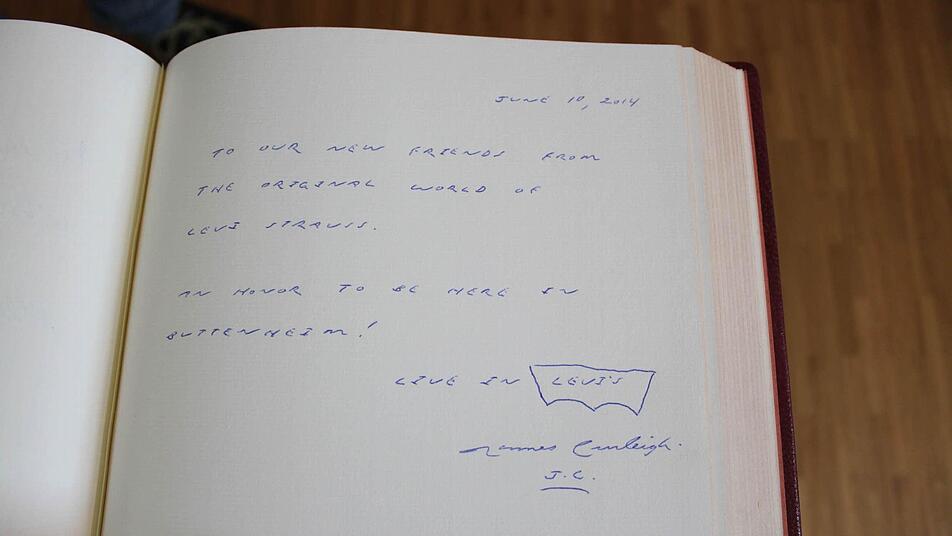 JUNE 10, 2014
TO OUR NEW FRIENDS FROM
THE ORIGINAL WORLD OF
LEVI STRAUSS.
AN HONOR TO BE HERE IN
BUTTENHEIM!
LIVE IN LEVI'S
James Curleigh.
J.C.